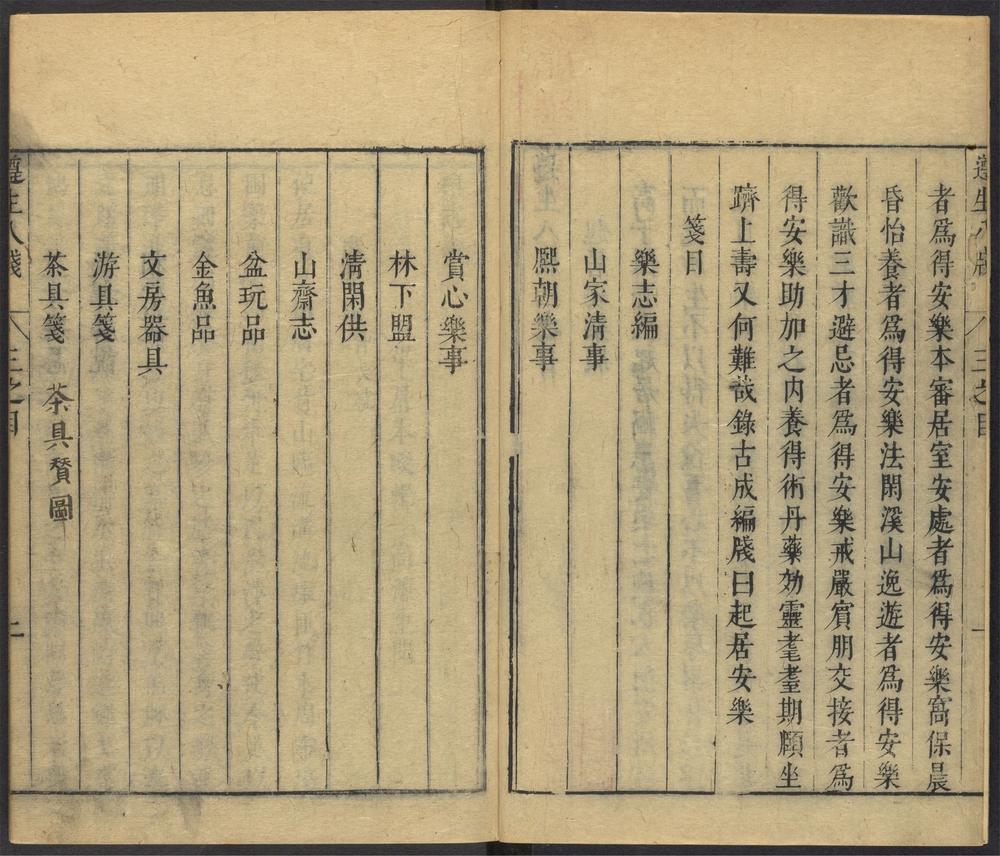 遵生八牋
三之目
一
者爲得安樂本審居室安處者爲得安樂窩保晨
昏怡養者爲得安樂法閑溪山逸遊者爲得安樂
歡識三才避忌者爲得安樂戒嚴賓朋交接者爲
得安樂助加之內養得術丹藥効靈耄耋期頤坐
躋上壽又何難哉錄古成編牋曰起居安樂
箋目
樂志編
山家清事
熈朝樂事
賞心樂事
林下盟
清閑供
山齋志
盆玩品
金魚品
文房器具
游具箋
茶具箋 茶具贊圖
遵生八牋
三之目
二